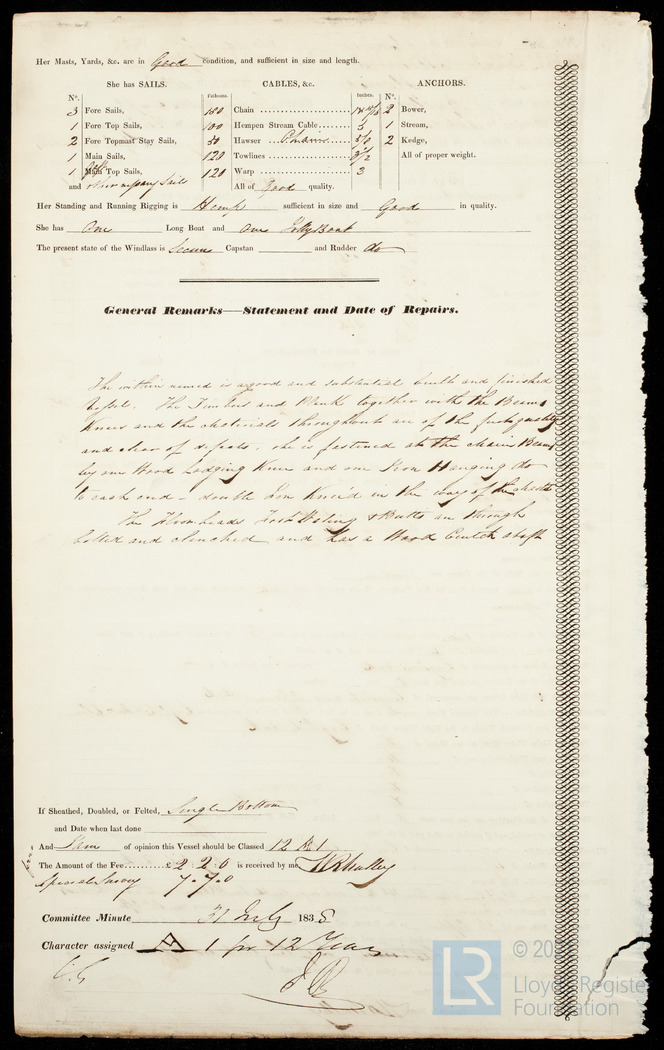 Her Masts, Yards, &c. are in Good condition, and sufficient in size and length.
She has SAILS. CABLES, &c. ANCHORS.
N°. Fathoms. Inches. N°.
3 Fore Sails, 180 Chain 2 Bower,
1 Fore Top Sails, 100 Hempen Stream Cable 5 1 Stream,
2 Fore Topmast Stay Sails, 50 Hawser Chain 2 Kedge,
1 Main Sails, 120 Towlines 3½ All of proper weight.
1 Gaff Top Sails, 120 Warp 3
and other necessary Sails All of Good quality.
Her Standing and Running Rigging is Hemp sufficient in size and Good in quality.
She has One Long Boat and One Jolly Boat
The present state of the Windlass is Secure Capstan and Rudder do
General Remarks—Statement and Date of Repairs.
The within named is a good and substantial built and finished
Vessel. The Timbers and Plank together with the Beams
Knees and the materials throughout are of the first quality
and clear of defects. she is fastened at the main Beams
by one Wood Lodging Knee and one Iron Hanging do
to each end - double Iron Knee'd in the way of the
The Floorheads are through
bolted and clenched and has a Wood
If Sheathed, Doubled, or Felted, Single Bottom
and Date when last done
And I am of opinion this Vessel should be Classed 12 A 1
The Amount of the Fee £2.2.0 is received by me,
Special Survey 7.7.0
Committee Minute 31 July 1838
Character assigned A 1 for 12 Years
© 20
LR
Lloyd's Register
Foundation